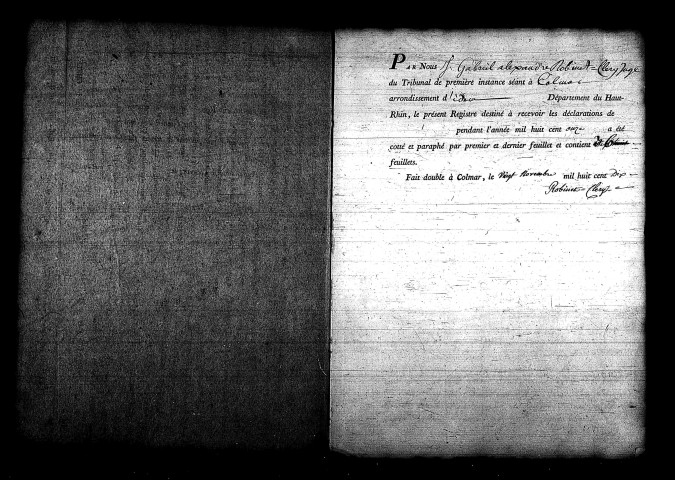 PAR Nous Gabriel alexandre Robinet-Clery Juge
du Tribunal de première instance séant à Colmar
arrondissement d' Département du Haut-
Rhin, le présent Registre destiné à recevoir les déclarations de
pendant l'année mil huit cent onze a été
coté et paraphé par premier et dernier feuillet et contient
feuillets.
Fait double à Colmar, le Vingt Novembre mil huit cent Dix
Robinet-Clery